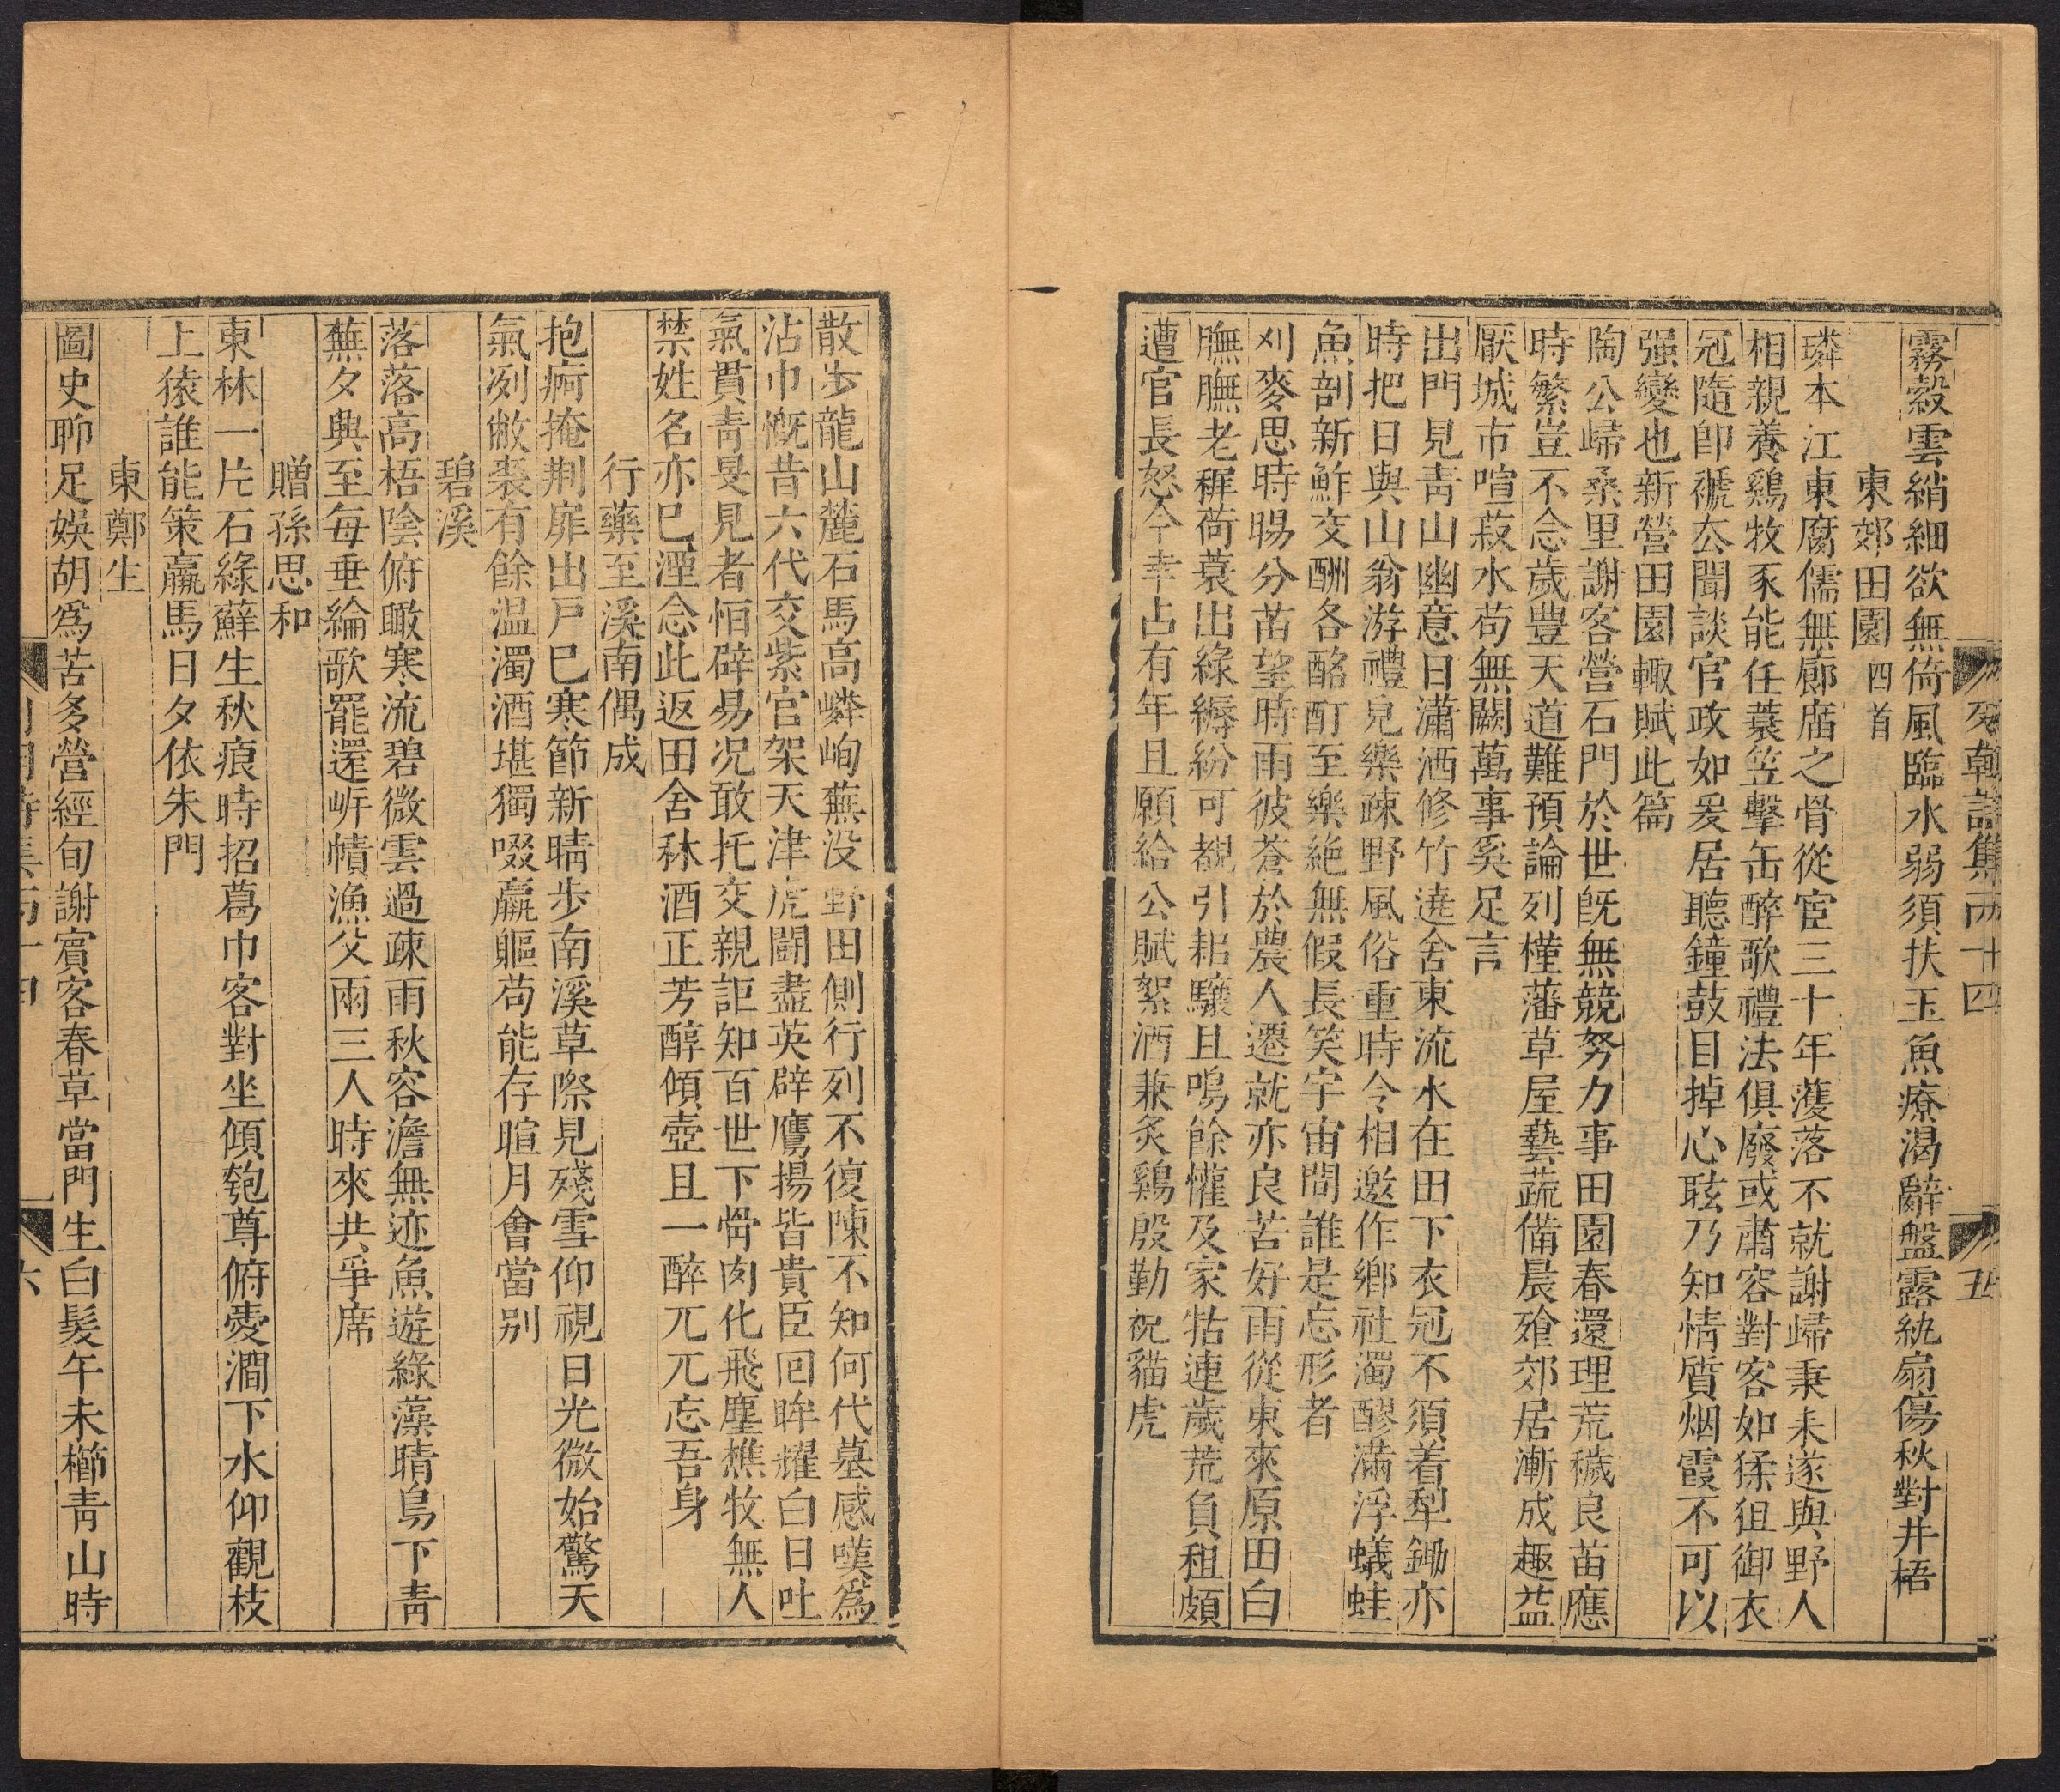 霧縠雲綃細欲無倚風臨水弱須扶玉魚療渴辭盤露紈扇傷秋對井梧
東郊田園四首
璘本江東腐儒無廊庿之骨從宦三十年濩落不就謝歸秉耒遂與野人
相親養鷄牧豕能任蓑笠擊缶醉歌禮法俱廢或肅容對客如猱狙御衣
冠隨卽褫厺聞談官政如爰居聽鐘鼓目掉心眩乃知情質烟霞不可以
强變也新營田園輙賦此篇
陶公歸桑里謝客營石門於世旣無競努力事田園春還理荒穢良苗應
時繁豈不念歲豊天道難預論列槿藩草屋藝蔬備晨飱郊居漸成趣益
厭城市喧菽水苟無闕萬事奚足言
出門見靑山幽意日瀟洒修竹遶舍東流水在田下衣冠不須着犁鋤亦
時把日與山翁游禮見樂疎野風俗重時令相邀作鄉社濁醪滿浮蟻蛙
魚剖新鮓交酬各酩酊至樂絶無假長笑宇宙間誰是忘形者
刈麥思時暘分苗望時雨彼蒼於農人遷就亦良苦好雨從東來原田白
膴膴老穉荷蓑出綠縟紛可覩引耜驤且鳴餘懽及家牯連歲荒負租頗
遭官長怒今幸占有年且願給公賦絮酒兼炙鷄殷勤祝貓虎
列朝詩集丙十四
五
散步龍山麓石馬高嶙峋蕪没野田側行列不復陳不知何代墓感嘆爲
沾巾慨昔六代交紫官架天津虎鬬盡英辟鷹揚皆貴臣回眸耀白日吐
氣貫靑旻見者恒辟易况敢托交親詎知百世下骨肉化飛塵樵牧無人
禁姓名亦已湮念此返田舍秫酒正芳醇傾壺且一醉兀兀忘吾身
行藥至溪南偶成
抱疴掩荆扉出戸巳寒節新晴步南溪草際見殘雪仰視日光微始驚天
氣冽敝裘有餘温濁酒堪獨啜羸軀苟能存暄月會當别
碧溪
落落高梧陰俯瞰寒流碧微雲過疎雨秋容澹無迹魚遊綠藻晴鳥下靑
蕪夕興至每垂綸歌罷還岸幘漁父兩三人時來共爭席
贈孫思和
東林一片石綠蘚生秋痕時招葛巾客對坐傾匏尊俯愛澗下水仰觀枝
上猿誰能策羸馬日夕依朱門
東鄭生
圖史聊足娛胡爲苦多營經旬謝賓客春草當門生白髮午未櫛靑山時
六